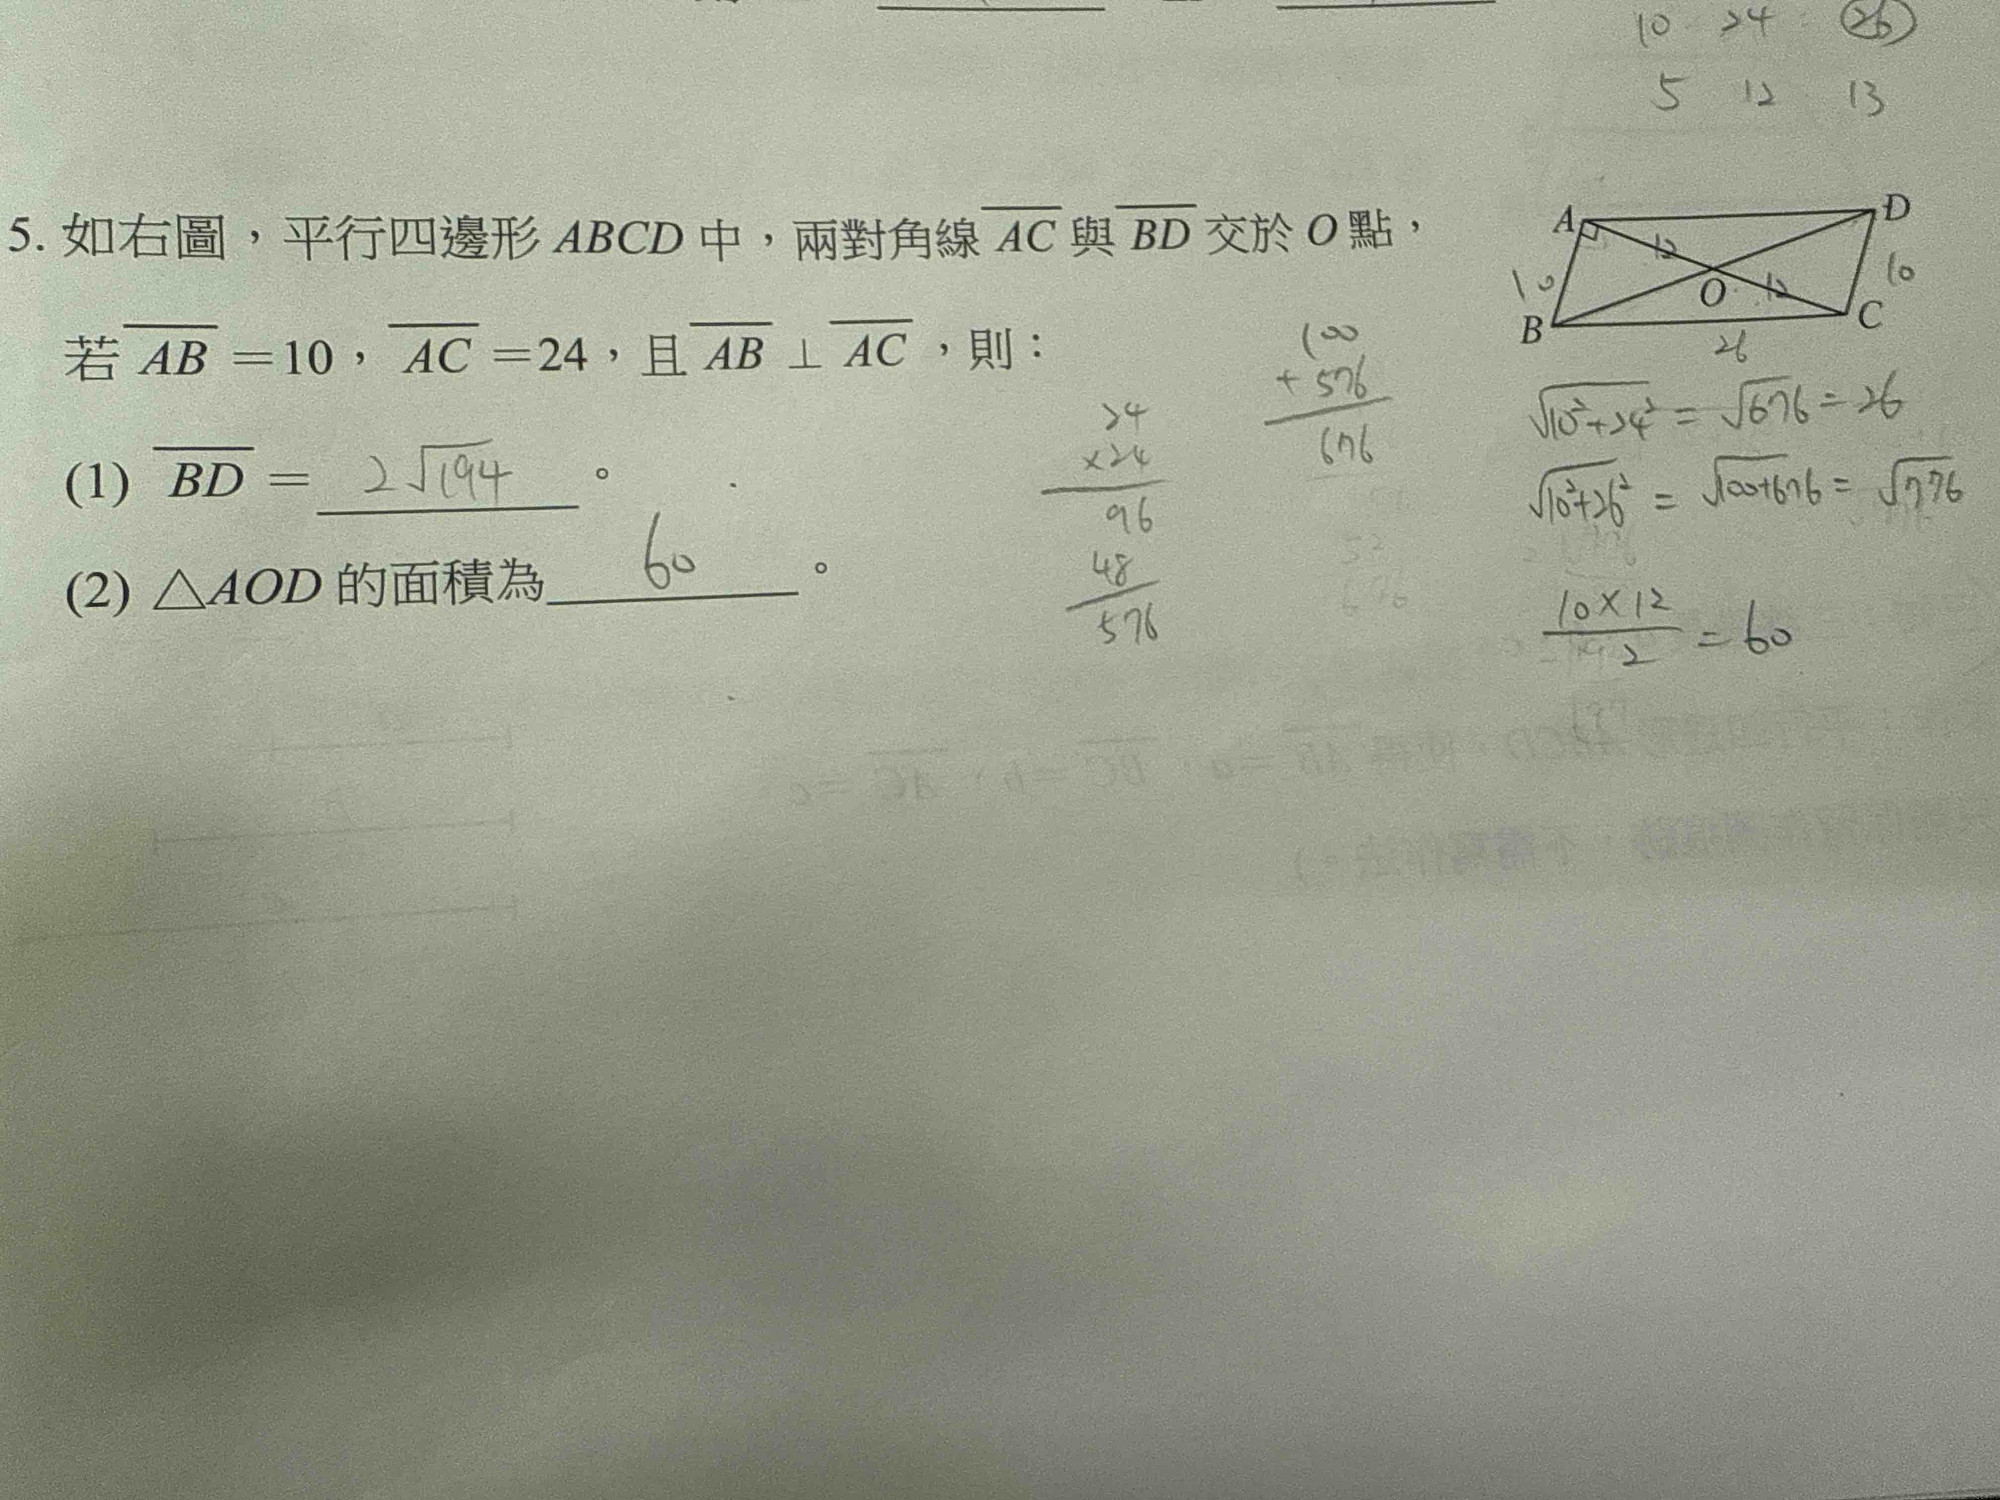 10 24 26
5 12 13
5. 如右圖，平行四邊形 ABCD 中，兩對角線 AC 與 BD 交於 O 點，
若 AB =10， AC =24，且 AB ⊥ AC ，則：
(1) BD = 2√194 。
(2) △AOD 的面積為 60 。
A D
12
10 10
O 12
B C
26
24
×24
96
48
576
100
+ 576
676
√10²+24² = √676 = 26
√10²+26² = √100+676 = √776
10×12
2 = 60